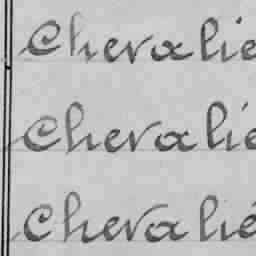 Chevalie
Chevalie
Chevalie